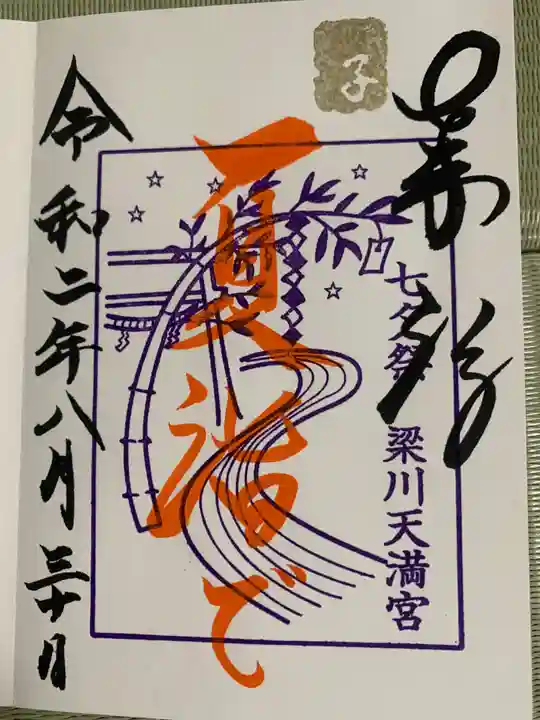 子
奉拝
七夕祭 梁川天満宮
夏詣で
令和二年八月三十日